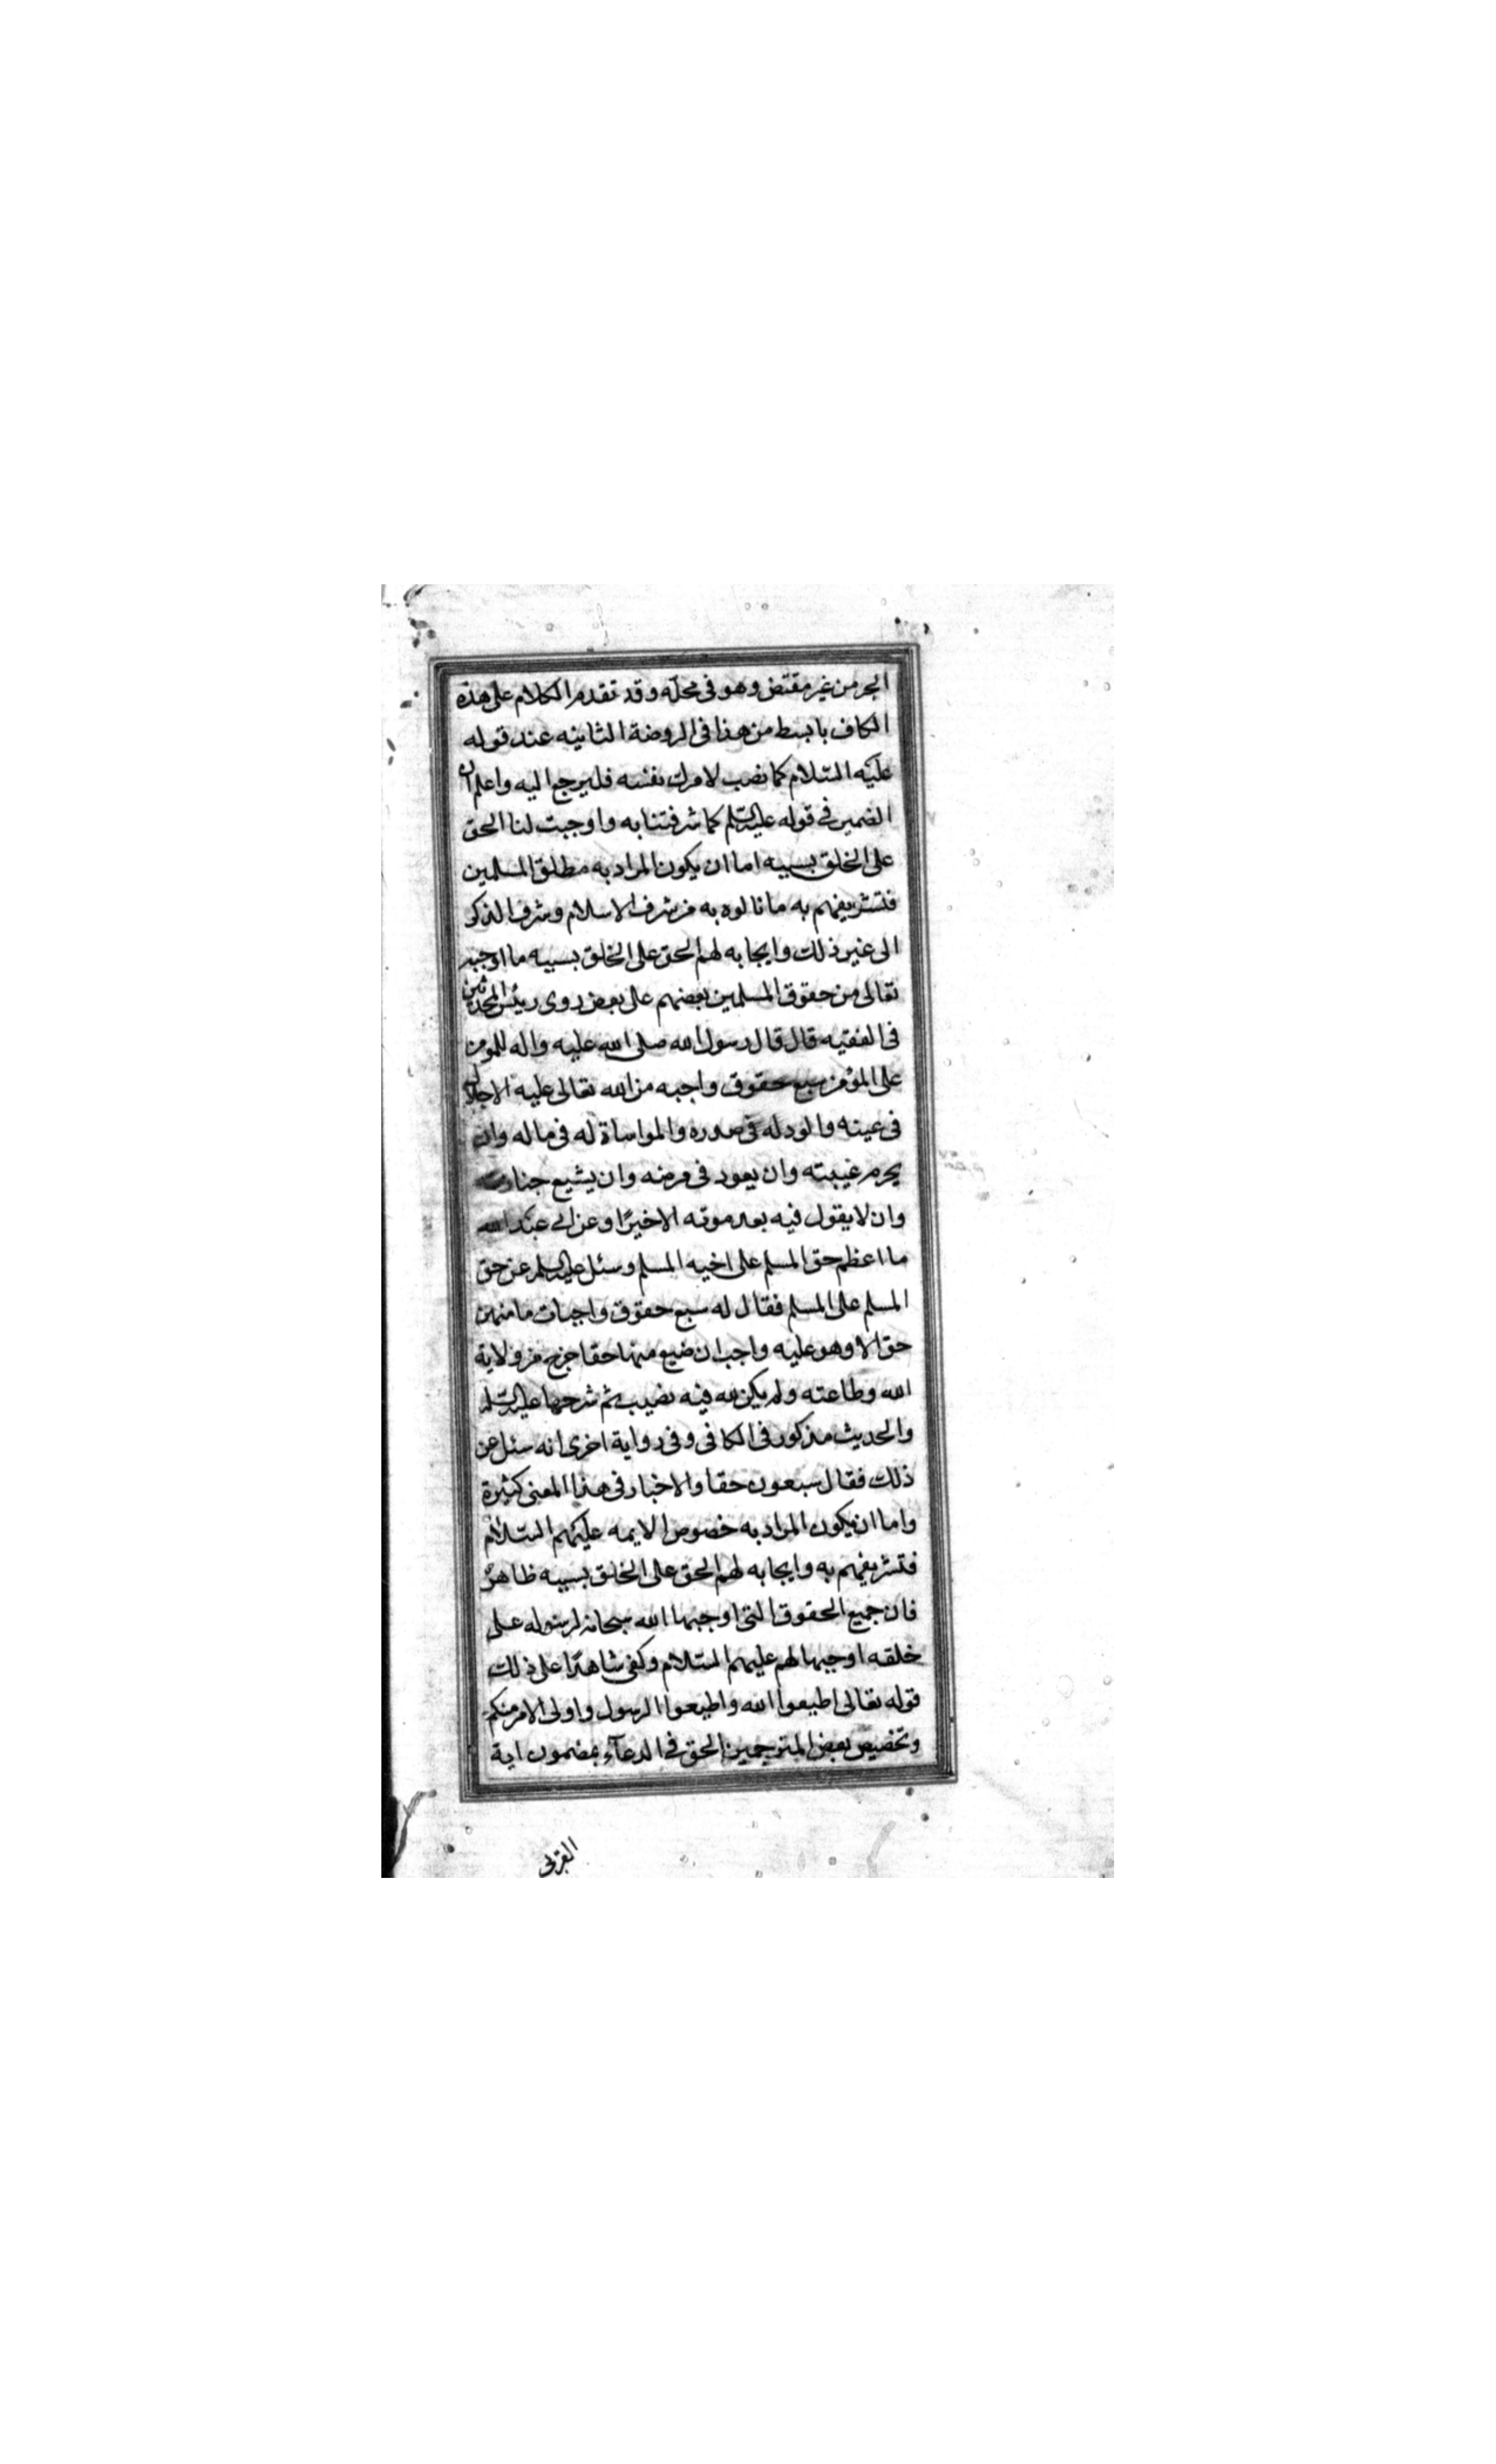 الجر من غير مقتض وهو فى محله وقد تقدم الكلام على هذه
الكاف بابسط من هذا فى الروضة الثانيه عند قوله
عليه السلام كما نصب لامرك نفسه فليرجع اليه واعلم ان
الضمير فى قوله عليه السلم كما شرفتنا به واوجبت لنا الحق
على الخلق بسببه اما ان يكون المراد به مطلق المسلمين
فتشريفهم به ما نالوه به من شرف الاسلام وشرف الذكر
الى غير ذلك وايجابه لهم الحق على الخلق بسببه ما اوجبه
تعالى من حقوق المسلمين بعضهم على بعض روى رئيس المحدثين
فى الفقيه قال قال رسول الله صلى الله عليه واله للمومن
على المؤمن سبع حقوق واجبه من الله تعالى عليه الاجلال
فى عينه والود له فى صدره والمواساة له فى ماله وان
يحرم غيبته وان يعود فى مرضه وان يشيع جنازته
وان لا يقول فيه بعد موته الا خيرًا وعن ابى عبد الله
ما اعظم حق المسلم على اخيه المسلم وسئل عليه السلم عن حق
المسلم على المسلم فقال له سبع حقوق واجبات ما منهن
حق الا وهو عليه واجب ان ضيع منها حقا خرج من ولاية
الله وطاعته ولم يكن لله فيه نصيب ثم شرحها عليه السلم
والحديث مذكور فى الكافى وفى رواية اخرى انه سئل عن
ذلك فقال سبعون حقا والاخبار فى هذا المعنى كثيرة
واما ان يكون المراد به خصوص الايمه عليهم السلام
فتشريفهم به وايجابه لهم الحق على الخلق بسببه ظاهر
فان جميع الحقوق التى اوجبها الله سبحانه لرسوله على
خلقه اوجبها لهم عليهم السلام وكفى شاهدًا على ذلك
قوله تعالى اطيعوا الله واطيعوا الرسول واولى الامر منكم
وتخصيص بعض المترجمين الحق فى الدعآء بمضمون اية
القربى